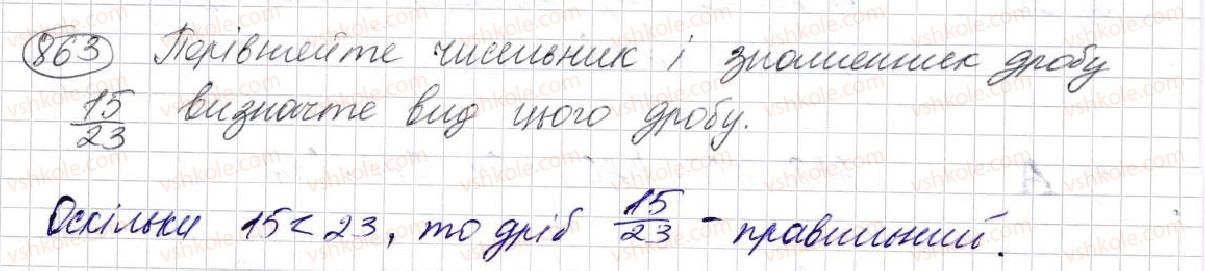 863 Порівняйте чисельник і знаменник дробу
15/23 визначте вид цього дробу.
Оскільки 15 < 23, то дріб 15/23 - правильний.